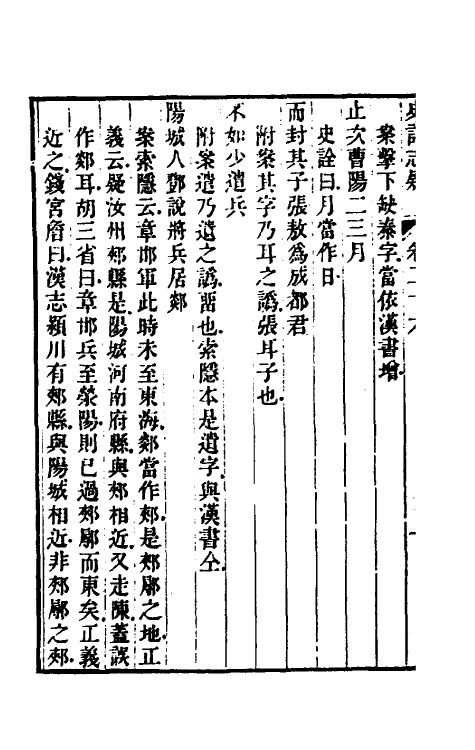 史記志疑 卷二十六
案擊下缺秦字當依漢書增
止次曹陽二三月
史詮曰月當作日
而封其子張敖爲成都君
附案其字乃耳之譌張耳子也
不如少遣兵
附案遣乃遺之譌習也索隱本是遺字與漢書仝
陽城人鄧說將兵居郯
案索隱云章邯軍此時未至東海郯當作郟是郟鄏之地正
義云疑汝州郟縣是陽城河南府縣與郟相近又走陳蓋誤
作郯耳胡三省曰章邯兵至滎陽則已過郟鄏而東矣正義
近之錢宮詹曰漢志潁川有郟縣與陽城相近非郟鄏之郟